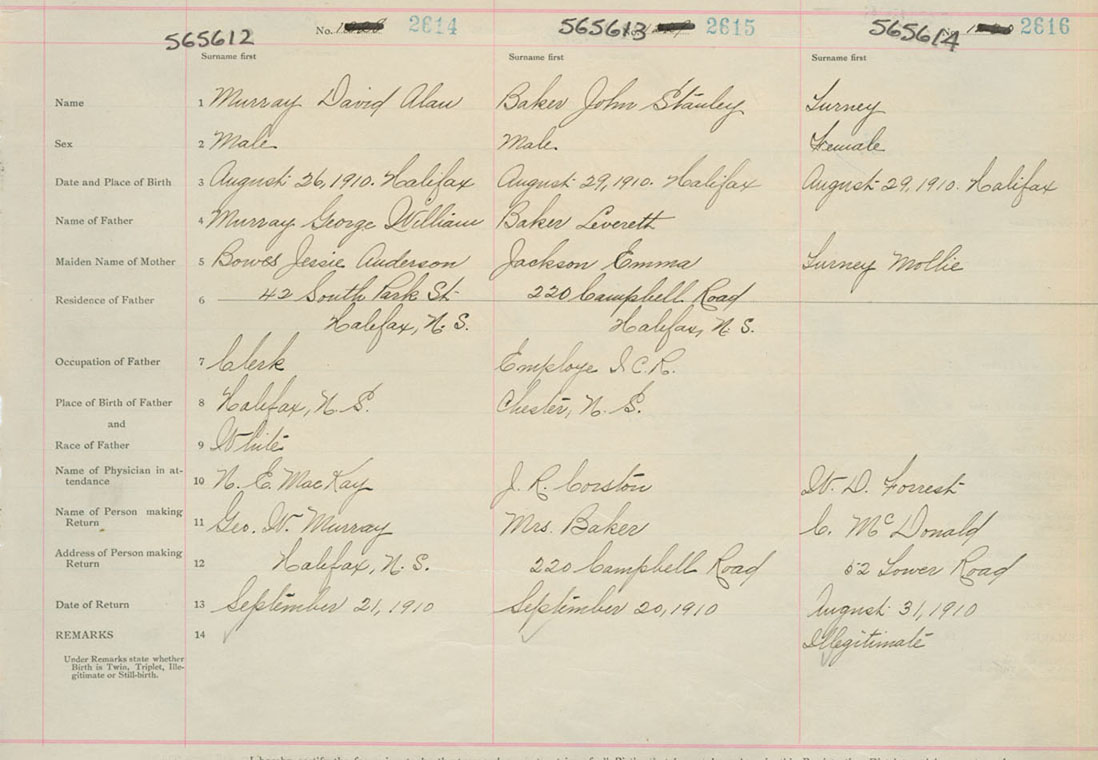 565612 No. 2614 565613 No. 2615 565614 No. 2616
Surname first Surname first Surname first
Name 1 Murray David Alan Baker John Stanley Surney
Sex 2 Male Male Female
Date and Place of Birth 3 August 26, 1910. Halifax August 29, 1910. Halifax August 29, 1910. Halifax
Name of Father 4 Murray George William Baker Leverett
Maiden Name of Mother 5 Bowes Jessie Anderson Jackson Emma Surney Mollie
Residence of Father 6 42 South Park St 220 Campbell Road
Halifax, N. S. Halifax, N. S.
Occupation of Father 7 Clerk Employe I. C. R.
Place of Birth of Father 8 Halifax, N. S. Chester, N. S.
and
Race of Father 9 White
Name of Physician in at-
tendance 10 N. E. MacKay J. R. Corston W. D. Forrest
Name of Person making
Return 11 Geo. W. Murray Mrs. Baker C. McDonald
Address of Person making
Return 12 Halifax, N. S. 220 Campbell Road 52 Lower Road
Date of Return 13 September 21, 1910 September 20, 1910 August 31, 1910
REMARKS 14 Illegitimate
Under Remarks state whether
Birth is Twin, Triplet, Ille-
gitimate or Still-birth.